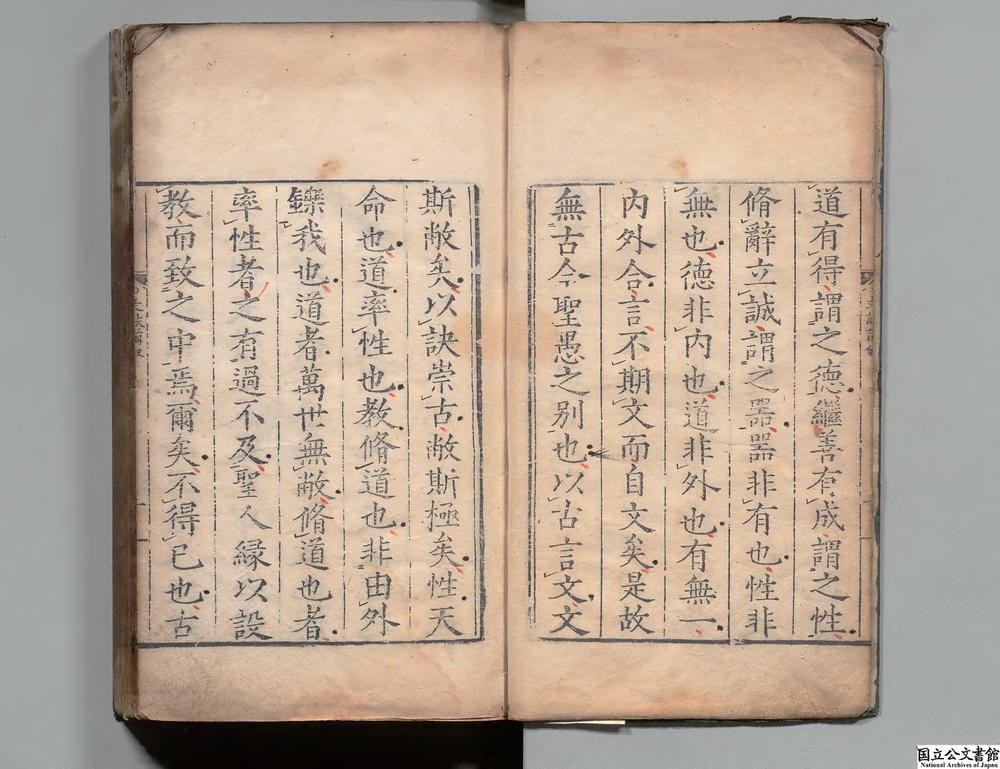 道有得謂之德繼善有成謂之性
脩辭立誠謂之器器非有也性非
無也德非内也道非外也有無一
内外合言不期文而自文矣是故
無古今聖愚之别也以古言文文
斯敝矣以訣崇古敝斯極矣性天
命也道率性也教脩道也非由外
鑠我也道者萬世無敝脩道也者
率性者之有過不及聖人縁以設
教而致之中焉爾矣不得已也古
国立公文書館
National Archives of Japan